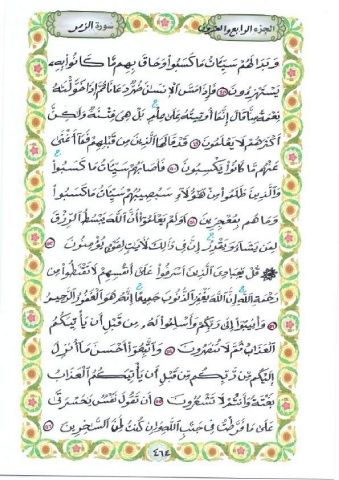 الجزء الرابع والعشرون سورة الزمر
وَبَدَا لَهُمْ سَيِّـَٔاتُ مَا كَسَبُوا۟ وَحَاقَ بِهِم مَّا كَانُوا۟ بِهِۦ
يَسْتَهْزِءُونَ ٤٨ فَإِذَا مَسَّ ٱلْإِنسَٰنَ ضُرٌّ دَعَانَا ثُمَّ إِذَا خَوَّلْنَٰهُ
نِعْمَةً مِّنَّا قَالَ إِنَّمَآ أُوتِيتُهُۥ عَلَىٰ عِلْمٍۭ بَلْ هِىَ فِتْنَةٌ وَلَٰكِنَّ
أَكْثَرَهُمْ لَا يَعْلَمُونَ ٤٩ قَدْ قَالَهَا ٱلَّذِينَ مِن قَبْلِهِمْ فَمَآ أَغْنَىٰ
عَنْهُم مَّا كَانُوا۟ يَكْسِبُونَ ٥٠ فَأَصَابَهُمْ سَيِّـَٔاتُ مَا كَسَبُوا۟
وَٱلَّذِينَ ظَلَمُوا۟ مِنْ هَٰٓؤُلَآءِ سَيُصِيبُهُمْ سَيِّـَٔاتُ مَا كَسَبُوا۟
وَمَا هُم بِمُعْجِزِينَ ٥١ أَوَلَمْ يَعْلَمُوٓا۟ أَنَّ ٱللَّهَ يَبْسُطُ ٱلرِّزْقَ
لِمَن يَشَآءُ وَيَقْدِرُ إِنَّ فِى ذَٰلِكَ لَـَٔايَٰتٍ لِّقَوْمٍ يُؤْمِنُونَ ٥٢
۞ قُلْ يَٰعِبَادِىَ ٱلَّذِينَ أَسْرَفُوا۟ عَلَىٰٓ أَنفُسِهِمْ لَا تَقْنَطُوا۟ مِن
رَّحْمَةِ ٱللَّهِ إِنَّ ٱللَّهَ يَغْفِرُ ٱلذُّنُوبَ جَمِيعًا إِنَّهُۥ هُوَ ٱلْغَفُورُ ٱلرَّحِيمُ
٥٣ وَأَنِيبُوٓا۟ إِلَىٰ رَبِّكُمْ وَأَسْلِمُوا۟ لَهُۥ مِن قَبْلِ أَن يَأْتِيَكُمُ
ٱلْعَذَابُ ثُمَّ لَا تُنصَرُونَ ٥٤ وَٱتَّبِعُوٓا۟ أَحْسَنَ مَآ أُنزِلَ
إِلَيْكُم مِّن رَّبِّكُم مِّن قَبْلِ أَن يَأْتِيَكُمُ ٱلْعَذَابُ
بَغْتَةً وَأَنتُمْ لَا تَشْعُرُونَ ٥٥ أَن تَقُولَ نَفْسٌ يَٰحَسْرَتَىٰ
عَلَىٰ مَا فَرَّطتُ فِى جَنۢبِ ٱللَّهِ وَإِن كُنتُ لَمِنَ ٱلسَّٰخِرِينَ ٥٦
٤٦٤